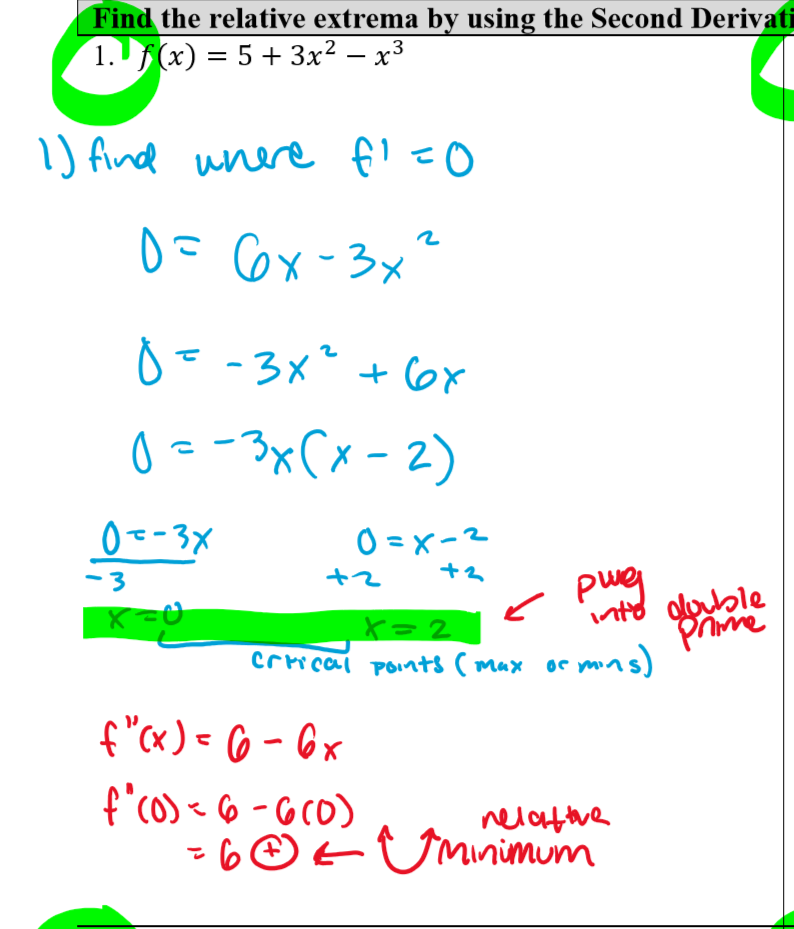 Find the relative extrema by using the Second Derivati
1. f(x) = 5 + 3x² − x³
1) find where f' = 0
0 = 6x - 3x²
0 = -3x² + 6x
0 = -3x(x - 2)
0 = -3x 0 = x - 2
-3 +2 +2
x = 0 x = 2
plug into double prime
critical points (max or mins)
f"(x) = 6 - 6x
f"(0) = 6 - 6(0)
= 6 (+) ← relative minimum